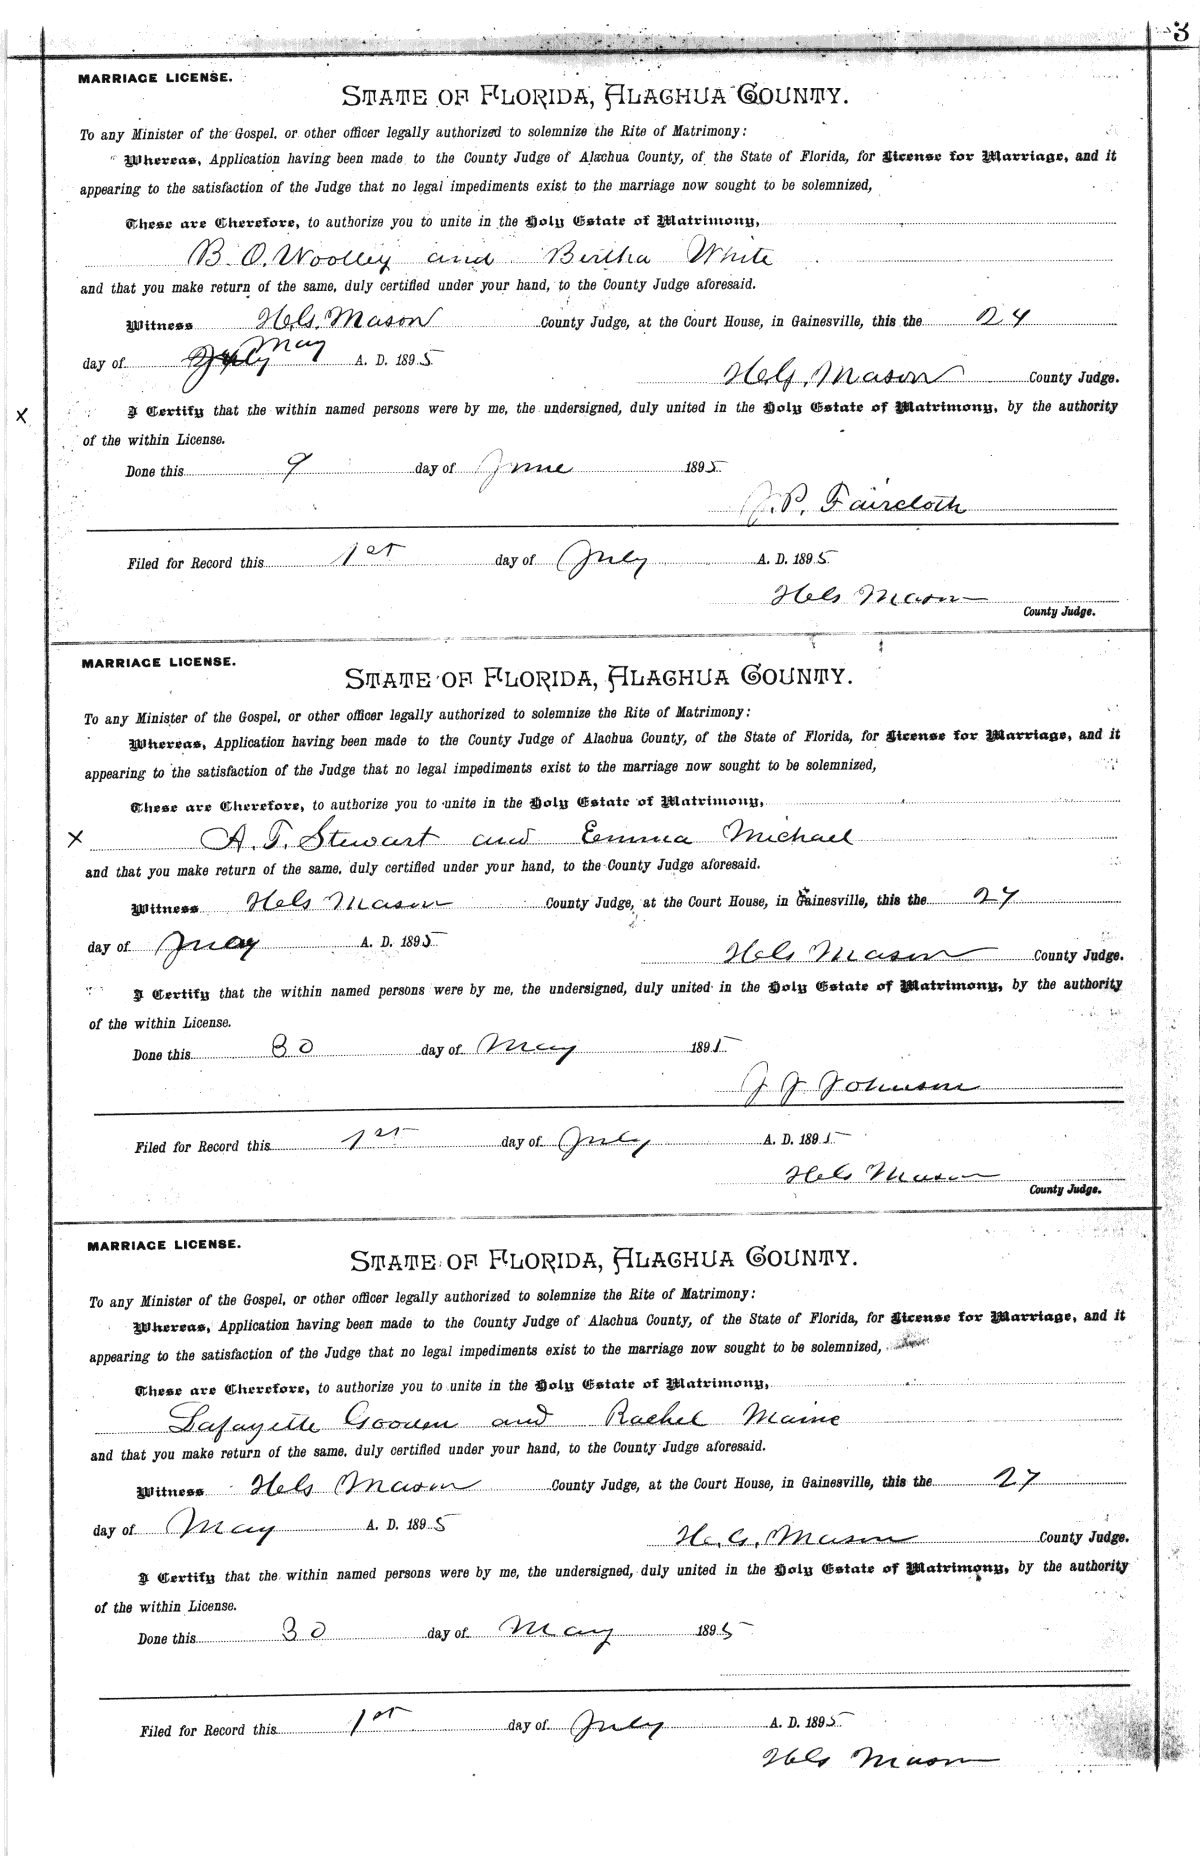 3
MARRIAGE LICENSE.
STATE OF FLORIDA, ALACHUA COUNTY.
To any Minister of the Gospel, or other officer legally authorized to solemnize the Rite of Matrimony:
Whereas, Application having been made to the County Judge of Alachua County, of the State of Florida, for License for Marriage, and it
appearing to the satisfaction of the Judge that no legal impediments exist to the marriage now sought to be solemnized,
These are Therefore, to authorize you to unite in the Holy Estate of Matrimony,
B. O. Woolley and Bertha White
and that you make return of the same, duly certified under your hand, to the County Judge aforesaid.
Witness Mason County Judge, at the Court House, in Gainesville, this the 24
day of July May A. D. 1895
Mason County Judge.
X I Certify that the within named persons were by me, the undersigned, duly united in the Holy Estate of Matrimony, by the authority
of the within License.
Done this 9 day of June 1895
J. P. Faircloth
Filed for Record this 1st day of July A. D. 1895
Mason
County Judge.
MARRIAGE LICENSE.
STATE OF FLORIDA, ALACHUA COUNTY.
To any Minister of the Gospel, or other officer legally authorized to solemnize the Rite of Matrimony:
Whereas, Application having been made to the County Judge of Alachua County, of the State of Florida, for License for Marriage, and it
appearing to the satisfaction of the Judge that no legal impediments exist to the marriage now sought to be solemnized,
These are Therefore, to authorize you to unite in the Holy Estate of Matrimony,
X A. T. Stewart and Emma Michael
and that you make return of the same, duly certified under your hand, to the County Judge aforesaid.
Witness Mason County Judge, at the Court House, in Gainesville, this the 27
day of May A. D. 1895
Mason County Judge.
I Certify that the within named persons were by me, the undersigned, duly united in the Holy Estate of Matrimony, by the authority
of the within License.
Done this 30 day of May 1895
J J Johnson
Filed for Record this 1st day of July A. D. 1895
Mason
County Judge.
MARRIAGE LICENSE.
STATE OF FLORIDA, ALACHUA COUNTY.
To any Minister of the Gospel, or other officer legally authorized to solemnize the Rite of Matrimony:
Whereas, Application having been made to the County Judge of Alachua County, of the State of Florida, for License for Marriage, and it
appearing to the satisfaction of the Judge that no legal impediments exist to the marriage now sought to be solemnized,
These are Therefore, to authorize you to unite in the Holy Estate of Matrimony,
Lafayette Gooden and Rachel Maine
and that you make return of the same, duly certified under your hand, to the County Judge aforesaid.
Witness Mason County Judge, at the Court House, in Gainesville, this the 27
day of May A. D. 1895
H. G. Mason County Judge.
I Certify that the within named persons were by me, the undersigned, duly united in the Holy Estate of Matrimony, by the authority
of the within License.
Done this 30 day of May 1895
Filed for Record this 1st day of July A. D. 1895
Mason